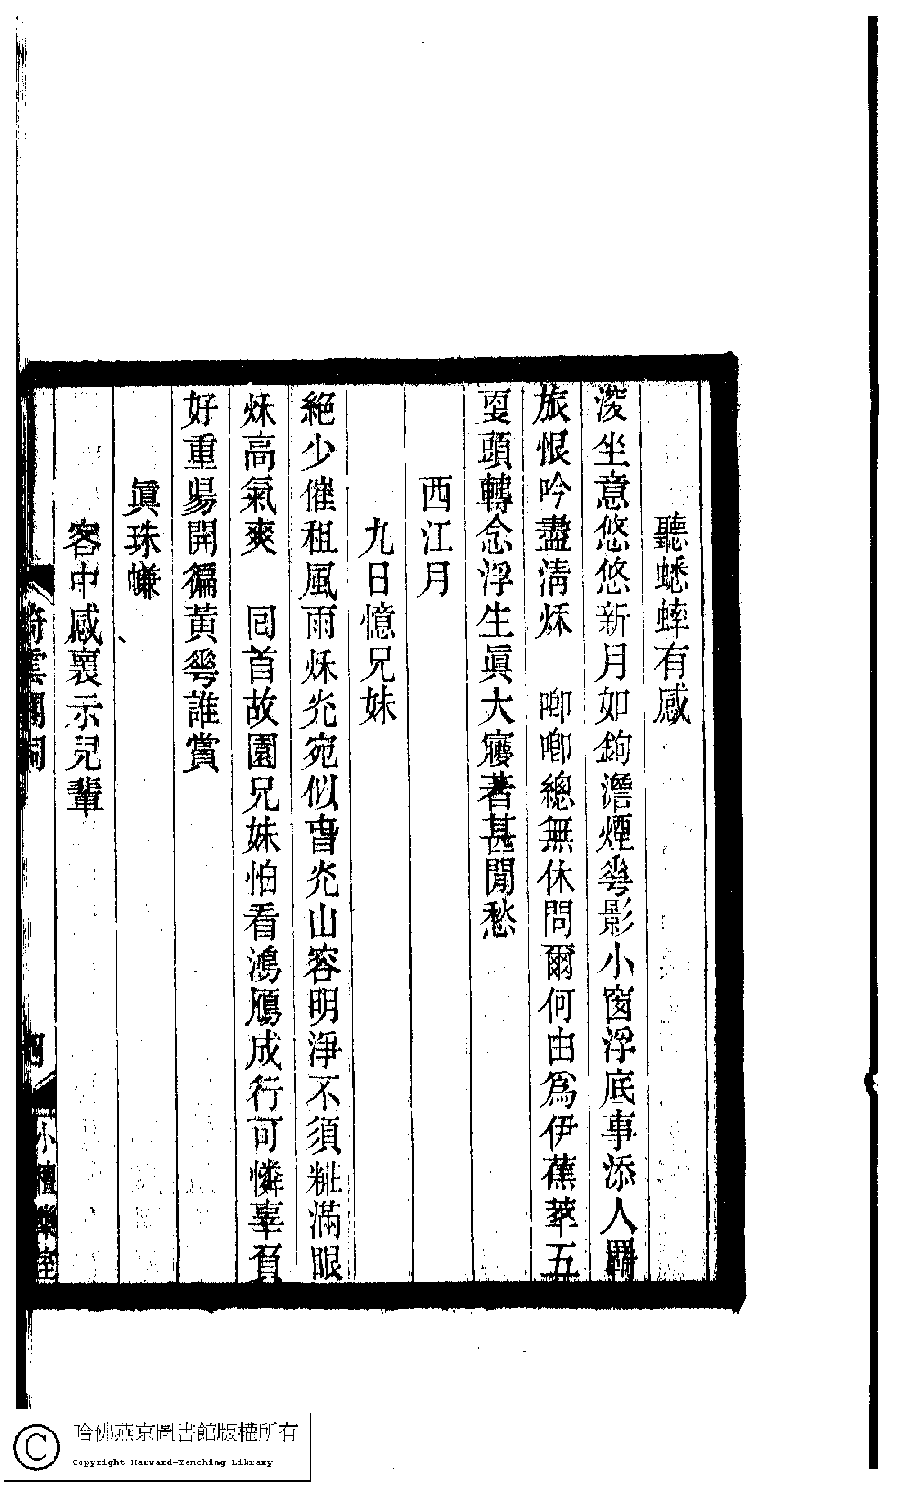 聽蟋蟀有感
深坐意悠悠新月如鉤澹煙花影小窗浮底事添人羈
旅恨吟盡清秌　啣啣總無休問爾何由爲伊蕉萃五
更頭轉念浮生眞大㝱著甚閒愁
西江月
九日憶兄妹
絕少催租風雨秌光宛似曹光山容明淨不須粧滿眼
秌高氣爽　回首故園兄妹怕看鴻鴈成行可憐辜負
好重昜開徧黃花誰賞
眞珠㡘
客中感褱示兒輩
綺雲閣詞
四
小檀欒室
哈佛燕京圖書館版權所有
Copyright Harvard-Yenching Library